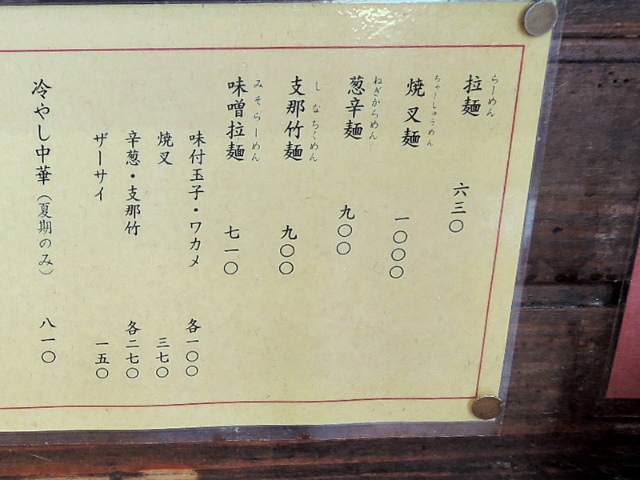 らーめん
拉麺 六三〇
ちゃーしゅうめん
焼叉麺 一〇〇〇
ねぎからめん
葱辛麺 九〇〇
しなちくめん
支那竹麺 九〇〇
みそらーめん
味噌拉麺 七一〇
味付玉子・ワカメ 各一〇〇
焼叉 三七〇
辛葱・支那竹 各二七〇
ザーサイ 一五〇
冷やし中華(夏期のみ) 八一〇